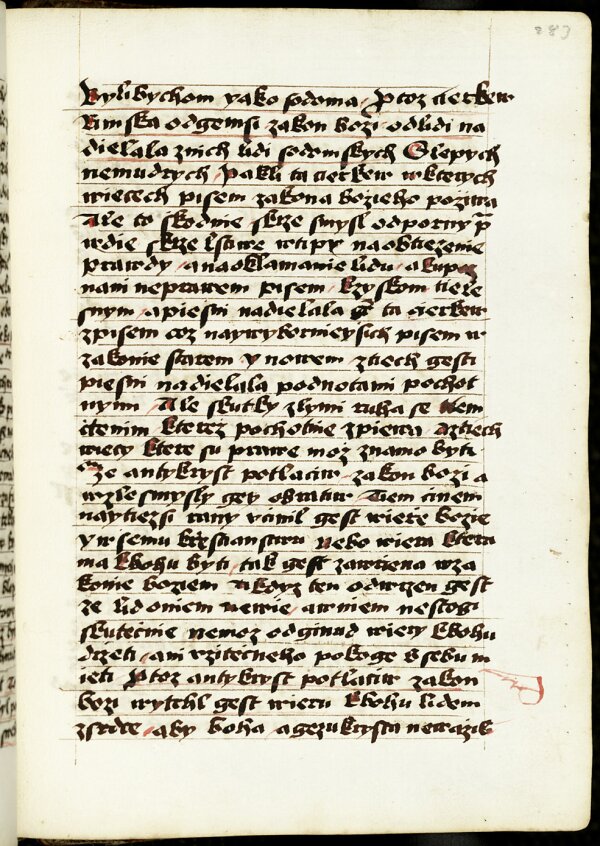 283
Bylibychom yako sodoma / Protoz cierkew
Rimska odgemsi zakon bozi odlidi na
dielala znich lidi sodomskych Slepych
nemudrych / Pakli ta cierkew wkterych
wietech pisem zakona bozieho poziwa
Ale to skodnie skrze smysl odporny p̄
wdie skrze lstiwe wtipy naobtiezenie
prawdy / a naoklamanie lidu / a kupo
nani neprawem pisem / kzyskom tiele
snym / a piesni nadielala gt ta cierkew
zpisem coz naywybornieysich pisem w
zakonie starem y nowem ztiech gesti
piesni nadielala podnotami pochot
nymi / Ale skutky zlymi ruha se tiem
cztenim kterez pochotnie zpiewa Aztiech
wiecy ktere su prawe moz znamo byti
Ze antykryst potlaciw zakon bozi a
wzle smysly gey obratiw / Tiem cinem
naytiezsi rany vcinil gest wierze bozie
y wsemu krzestianstwu Nebo wiera ktera
ma kbohu byti / tak gest zawriena wza
konie boziem Akdyz ten odwrzen gest
ze lid oniem newie / awniem nestogi
skutecznie nemoz odginud wiery kbohu
drzeti / ani vzitecneho pokoge Bsebu m
ieti Protoz antykryst potlaciw zakon
bozi wytrhl gest wieru kbohu lidem
zsrdce / aby boha / agezukrysta newazili